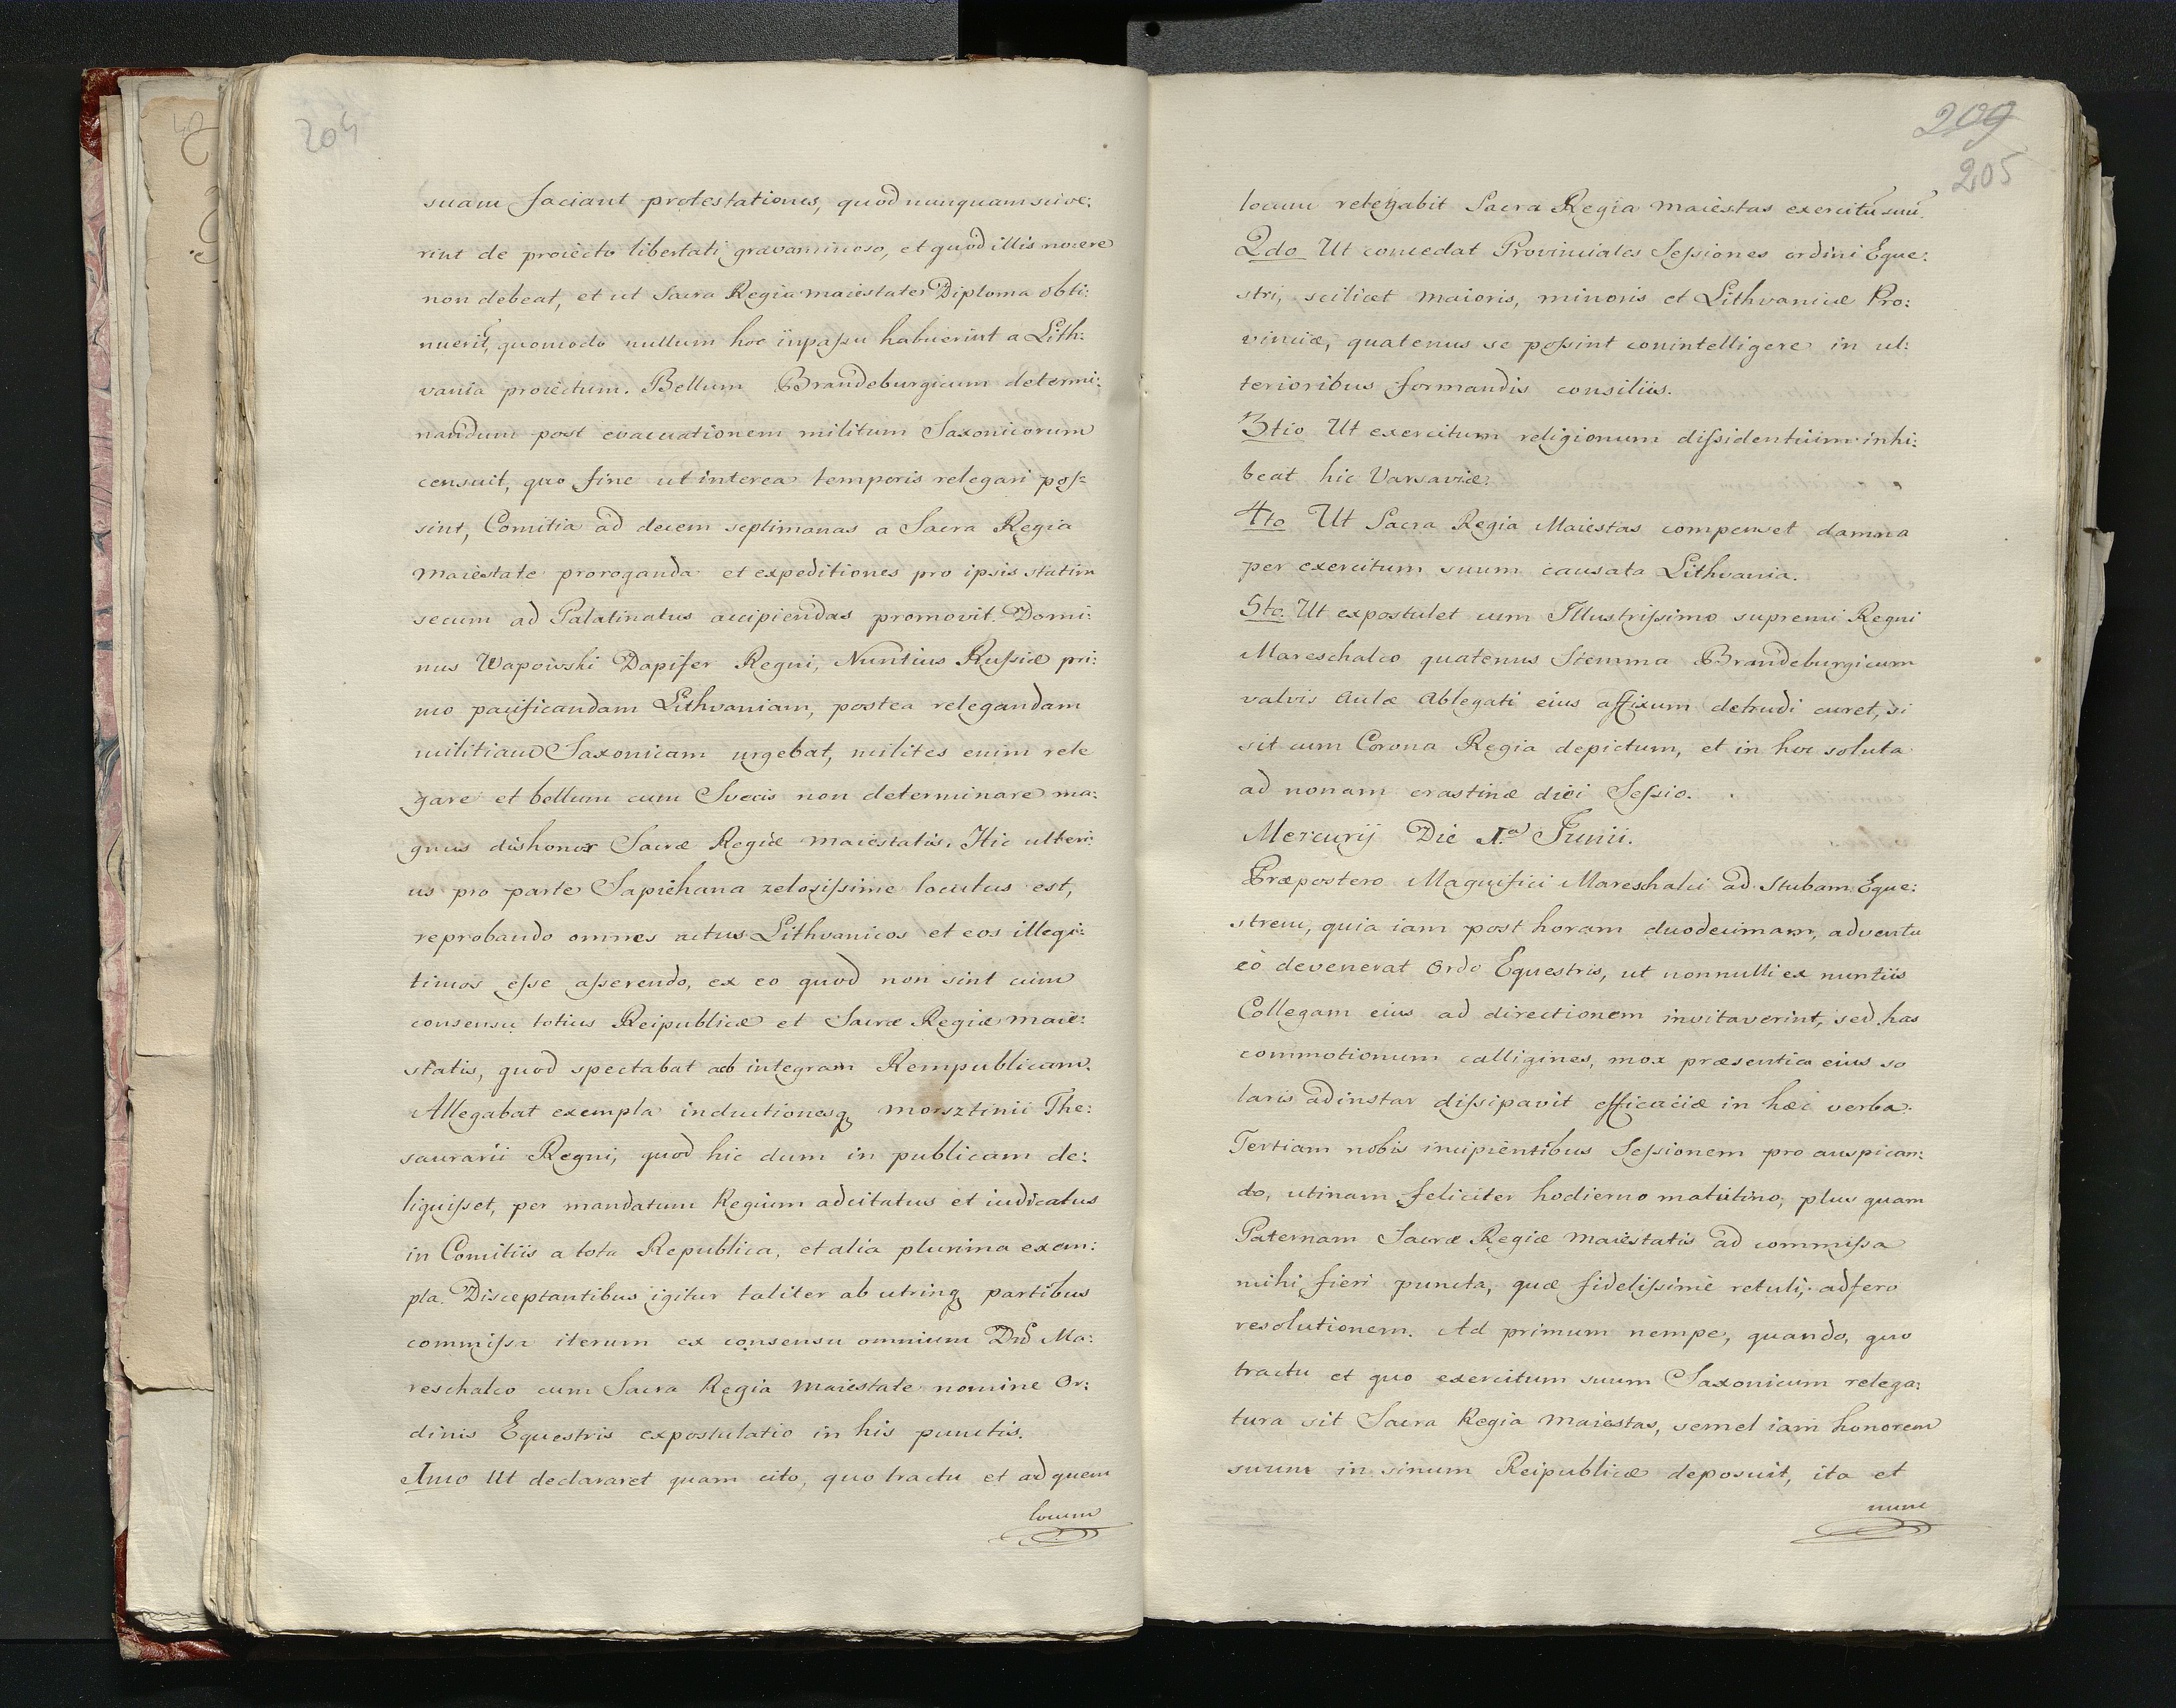 204
suam faciant protestationes, quod nunquam scive:
rint de proiecto libertati gravaminoso, et quod illis nocere
non debeat, et ut Sacra Regia maiestates Diploma obti:
nuerit, quomodo nullum hoc inpaſsu habuerint a Lith:
vania proiectum. Bellum Brandeburgicum determi:
nandum post evacuationem militum Saxonicorum
censuit, quo fine ut interea temporis relegari poſ:
sint, Comitia ad decem septimanas a Sacra Regia
Maiestate proroganda et expeditiones pro ipsis statim
secum ad Palatinatus accipiendas promovit. Domi:
nus Wapowski Dapifer Regni, Nuntius Ruſsiæ pri:
mo pacificandam Lithvaniam, postea relegandam
militiam Saxonicam urgebat, milites enim rele
gare et bellum cum Svecis non determinare ma:
gnus dishonor Sacræ Regiæ maiestatis. Hic ulteri:
us pro parte Sapiehana zelosiſsime locutus est,
reprobando omnes actus Lithvanicos et eos illegi:
timos eſse aſserendo, ex eo quod non sint cum
consensu totius Reipublicæ et Sacræ Regiæ maie:
statis, quod spectabat ad integram Rempublicam.
Allegabat exempla inductionesq; morsztinii The:
saurarii Regni, quod hic dum in publicam de:
liquiſset, per mandatum Regium adcitatus et iudicatus
in Comitiis a tota Republica, et alia plurima exem:
pla. Disceptantibus igitur taliter ab utrinq; partibus
commiſsa iterum ex consensu omnium Dnō Ma:
reschalco cum Sacra Regia Maiestate nomine Or:
dinis Equestris expostulatio in his punctis.
1mo Ut declararet quam cito, quo tractu et ad quem
locum
209
205
locum relegabit Sacra Regia maiestas exercitū suū.
2do Ut concedat Provinciales Seſsiones ordini Eque:
stri, scilicet maioris, minoris et Lithvaniæ Pro:
vinciæ, quatenus se poſsint conintelligere in ul:
terioribus formandis consiliis.
3tio Ut exercitum religionum diſsidentium inhi:
beat hic Varsaviæ.
4to Ut Sacra Regia Maiestas compenset damna
per exercitum suum causata Lithvania.
5to Ut expostulet cum Illustriſsimo supremi Regni
Mareschalco quatenus Stemma Brandeburgicum
valvis Aulæ Ablegati eius affixum detrudi curet, si
sit cum Corona Regia depictum, et in hoc soluta
ad nonam crastinæ diei Seſsio.
Mercurij Die 1.a Junii.
Præpostero Magnifici Mareshalci ad Stubam Eque:
strem, quia iam post horam duodecimam, adventu
eò devenerat Ordo Equestris, ut nonnulli ex nuntiis
Collegam eius ad directionem invitaverint, sed has
commotionum calligines, mox præsentia eius so
laris adinstar diſsipavit efficaciæ in hæc verba.
Tertiam nobis incipientibus Seſsionem pro auspican:
do, utinam feliciter hodierno matutino, plus quam
Paternam Sacræ Regiæ Maiestatis ad commiſsa
mihi fieri puncta, quæ fideliſsime retuli, adfero
resolutionem. Ad primum nempe, quando, quo
tractu et quo exercitum suum Saxonicum relega:
tura sit Sacra Regia Maiestas, semel iam honorem
suum in sinum Reipublicæ deposuit, ita et
nunc